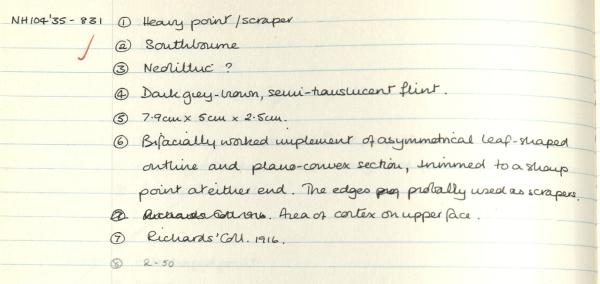 NH104'35-831 ① Heavy point/scraper
② Southbourne
③ Neolithic ?
④ Dark grey-brown, semi-translucent flint.
⑤ 7.9cm x 5cm x 2.5cm.
⑥ Bifacially worked implement of asymmetrical leaf-shaped
outline and plano-convex section, trimmed to a sharp
point at either end. The edges probably used as scrapers.
⑦ Richards' Coll. 1916. Area of cortex on upper face.
⑦ Richards' Coll. 1916.
⑧ 2-50